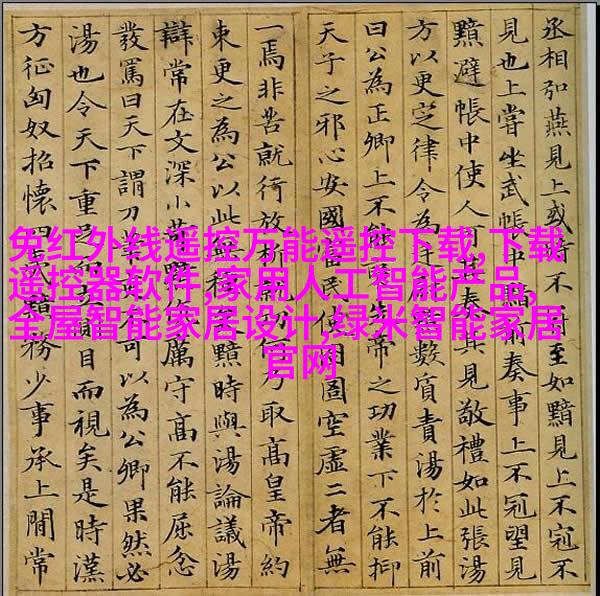 免红外线遥控万能遥控下载,下载
遥控器软件,家用人工智能产品,
全屋智能家居设计,绿米智能家居
官网
丞相弘燕見上或時不冠至如黯見上不冠不
見也上嘗坐武帳中黯前奏事上不冠望見
黯避帳中使人可其奏其見敬禮如此張湯
方以更定律令為廷尉黯數質責湯於上前
曰公為正卿上不能先帝之功業下不能抑
天子之邪心安國富民使囹圄空虛二者無
一焉非苦就行放析就何乃取高皇帝約
束更之為公以此種黯時與湯論議湯
辯常在文深小苛黯厲守高不能屈忿
發罵曰天下謂刀筆不可以為公卿果然必
湯也令天下重足側目而視矣是時漢
方征匈奴招懷四夷黯務少事承上閒常